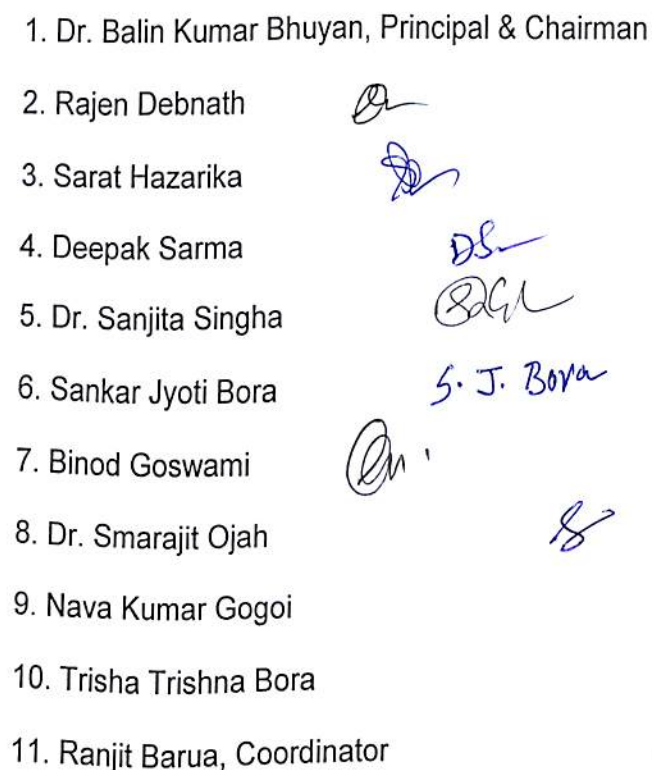 1. Dr. Balin Kumar Bhuyan, Principal & Chairman
2. Rajen Debnath
3. Sarat Hazarika
4. Deepak Sarma DS
5. Dr. Sanjita Singha
6. Sankar Jyoti Bora S. J. Bora
7. Binod Goswami
8. Dr. Smarajit Ojah
9. Nava Kumar Gogoi
10. Trisha Trishna Bora
11. Ranjit Barua, Coordinator